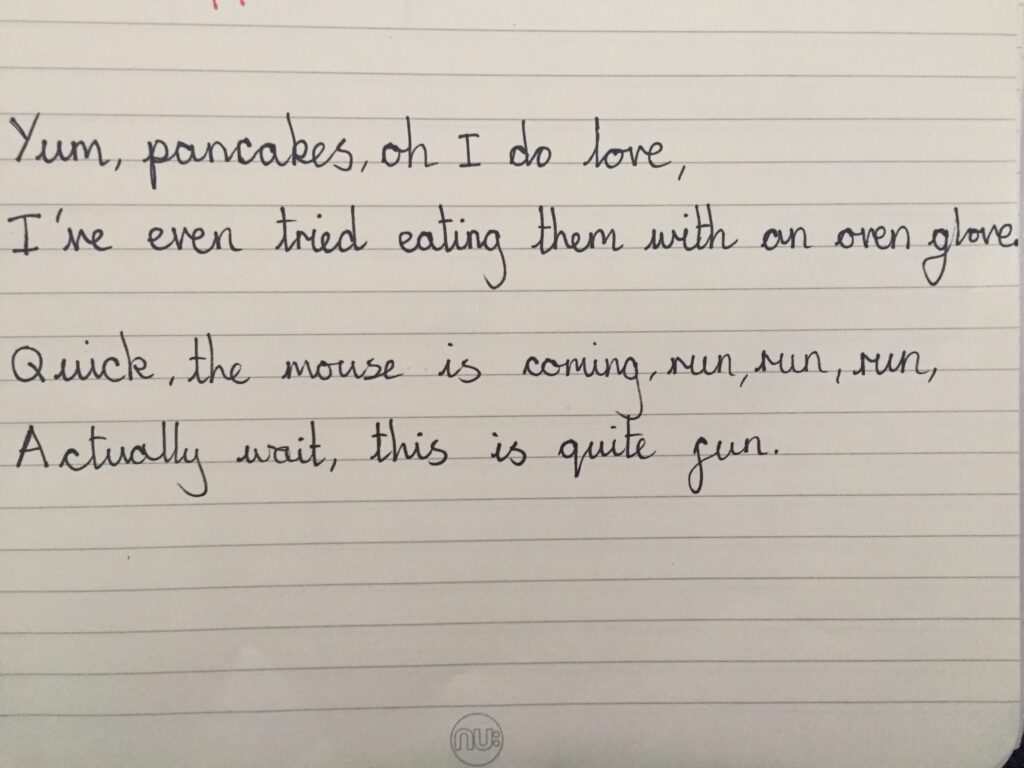 Yum, pancakes, oh I do love,
I've even tried eating them with an oven glove.
Quick, the mouse is coming, run, run, run,
Actually wait, this is quite fun.
nu: